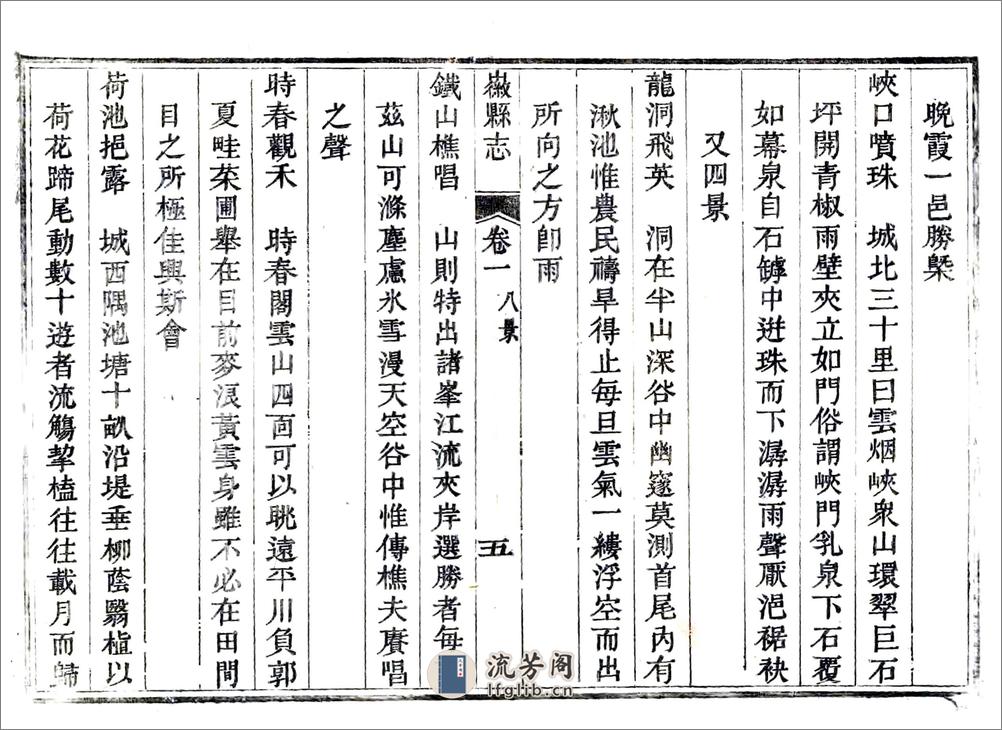 晚霞一邑勝槩
峽口噴珠　城北三十里曰雲烟峽衆山環翠巨石
坪開青椒雨壁夾立如門俗謂峽門乳泉下石覆
如幕泉自石罅中迸珠而下潺潺雨聲厭浥裾袂
又四景
龍洞飛英　洞在半山深谷中幽邃莫測首尾內有
湫池惟農民禱旱得止每旦雲氣一縷浮空而出
所向之方卽雨
徽縣志　卷一　八景　五
鐵山樵唱　山則特出諸峯江流夾岸選勝者每
茲山可滌塵慮氷雪漫天空谷中惟傳樵夫賡唱
之聲
時春觀禾　時春閣雲山四面可以眺遠平川負郭
夏畦菜圃舉在目前麥浪黃雲身雖不必在田間
目之所極佳興斯會
荷池挹露　城西隅池塘十畝沿堤垂柳蔭翳植以
荷花蹄尾動數十遊者流觴挈榼往往載月而歸
流芳阁
lfglib.cn